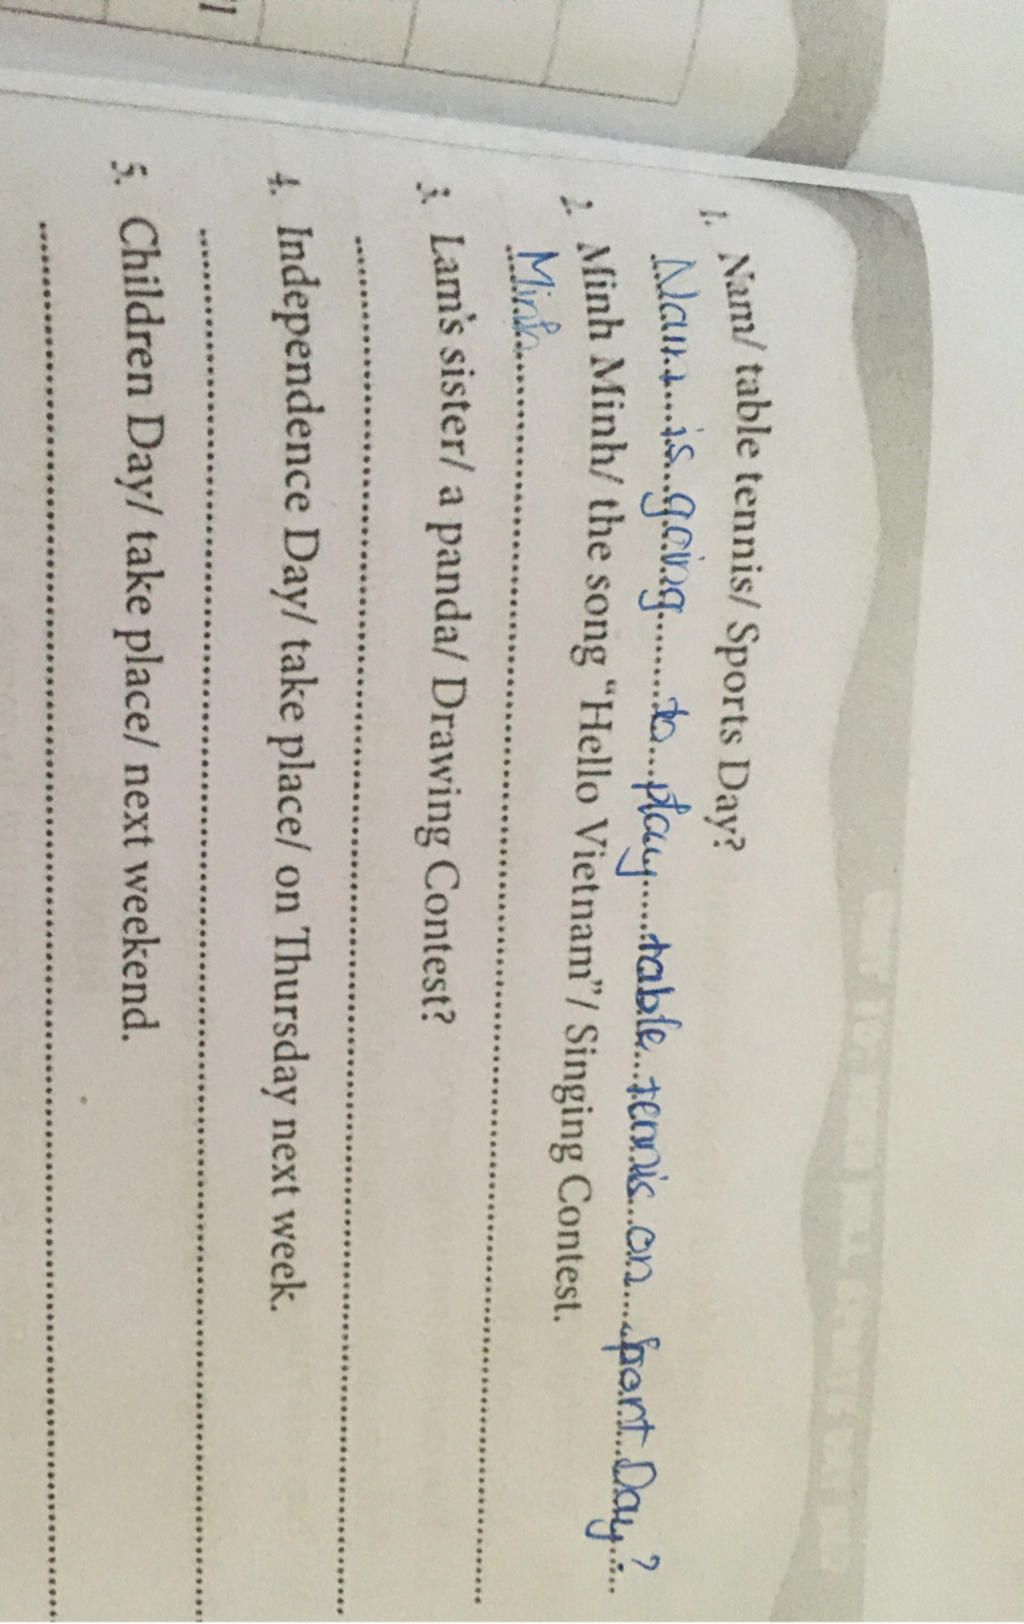 1. Nam/ table tennis/ Sports Day?
Nam is going to play table tennis on Sport Day?
2. Minh Minh/ the song “Hello Vietnam”/ Singing Contest.
Minh
3. Lam's sister/ a panda/ Drawing Contest?
4. Independence Day/ take place/ on Thursday next week.
5. Children Day/ take place/ next weekend.